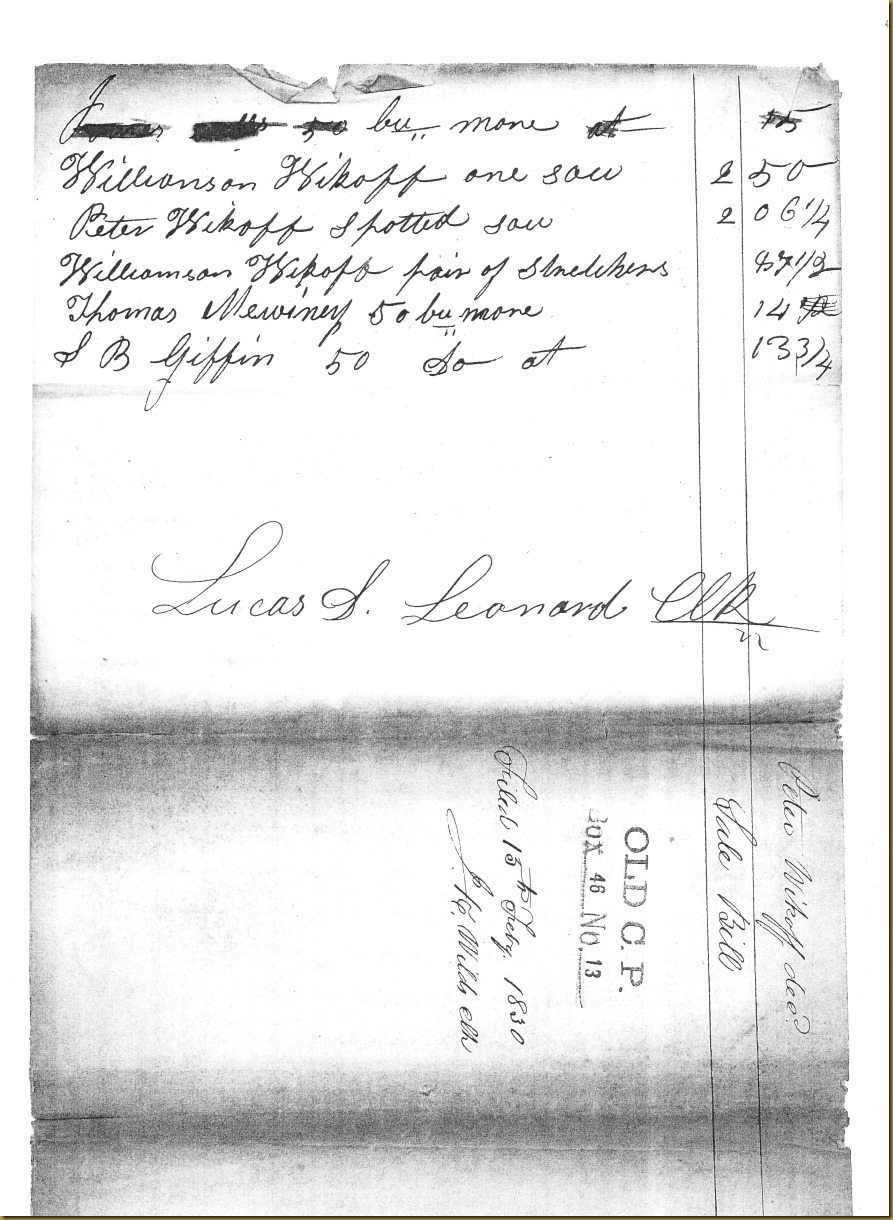 bu more at 15
Willianson Wikoff one sow 2 50
Peter Wikoff Spotted sow 2 06 1/4
Williamson Wikoff pair of Stretchers 87 1/2
Thomas 50 bu more 14
S B Giffin 50 Do at 13 3/4
Lucas S. Leonard Clk
Peter Wikoff dec?
Sale Bill
OLD C. P.
BOX 46 No. 13
Filed 15th Feby. 1830
Wilds Clk